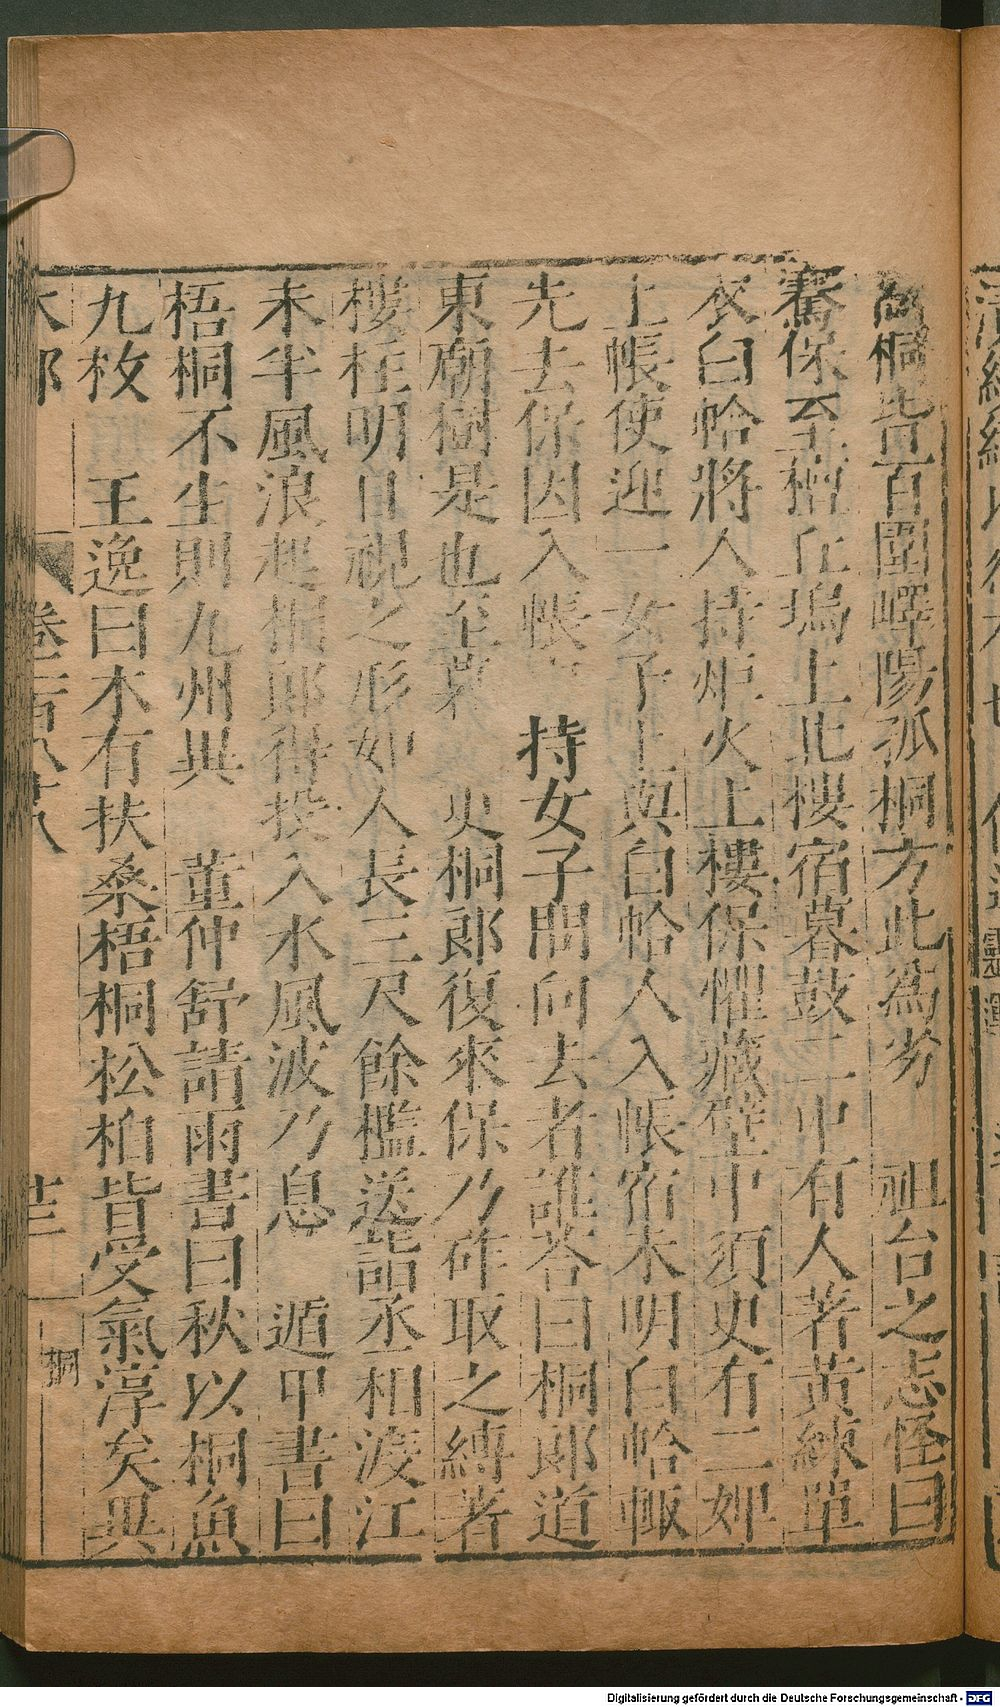 桐皆百圍嶧陽孤桐方此爲劣　祖台之志怪曰
騫保至檀丘塢上北樓宿暮鼓二中有人著黃練單
衣白帢將人持炬火上樓保懼藏壁中須臾有二婢
上帳使迎一女子上與白帢人入帳宿未明白帢輙
先去保因入帳持女子問向去者誰答曰桐郎道
東廟樹是也至暮　更桐郎復來保乃斫取之縛著
樓柱明日視之形如人長三尺餘檻送詣丞相渡江
未半風浪起桐郎得投入水風波乃息　遁甲書曰
梧桐不生則九州異　董仲舒請雨書曰秋以桐魚
九枚　王逸曰木有扶桑梧桐松柏皆受氣淳矣異
木部　卷一百八十八　十三　桐
Digitalisierung gefördert durch die Deutsche Forschungsgemeinschaft - DFG